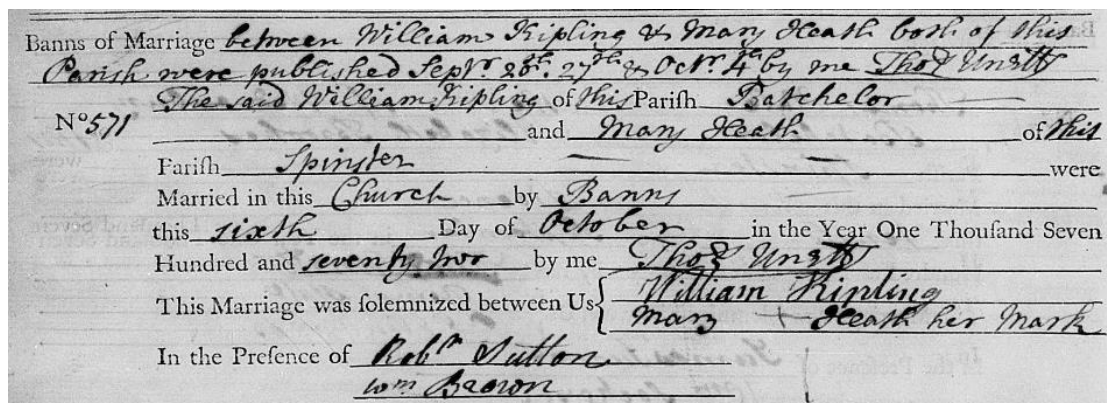 Banns of Marriage between William Kipling & Mary Heath both of this
Parish were published Septr. 20th. 27th & Octr. 4th by me Thos Unett
The said William Kipling of this Parish Batchelor
No 571 and Mary Heath of this
Pariſh Spinster were
Married in this Church by Banns
this sixth Day of October in the Year One Thouſand Seven
Hundred and seventy two by me Thos Unett
This Marriage was ſolemnized between Us { William Kipling
Mary + Heath her Mark
In the Preſence of Robt Sutton
Wm Brown